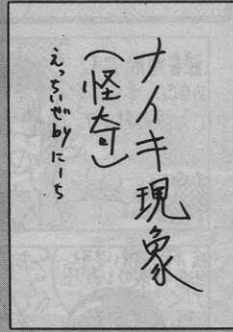 ナイキ現象
(怪奇)
えっちいぜby にーち